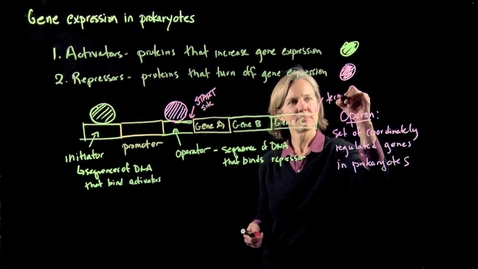 Gene expression in prokaryotes
1. Activators - proteins that increase gene expression
2. Repressors - proteins that turn off gene expression
START
site
Gene A Gene B Gene
initiator
promoter
operator - sequence of DNA
that binds repressor
sequences of DNA
that bind activators
Operon:
set of coordinately
regulated genes
in prokaryotes